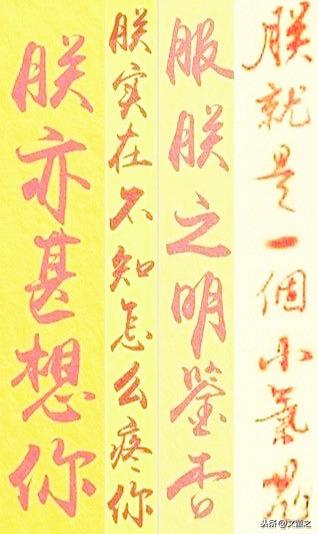 朕亦甚想你
朕实在不知怎么疼你
服朕之明鉴否
朕就是一個小氣
头条